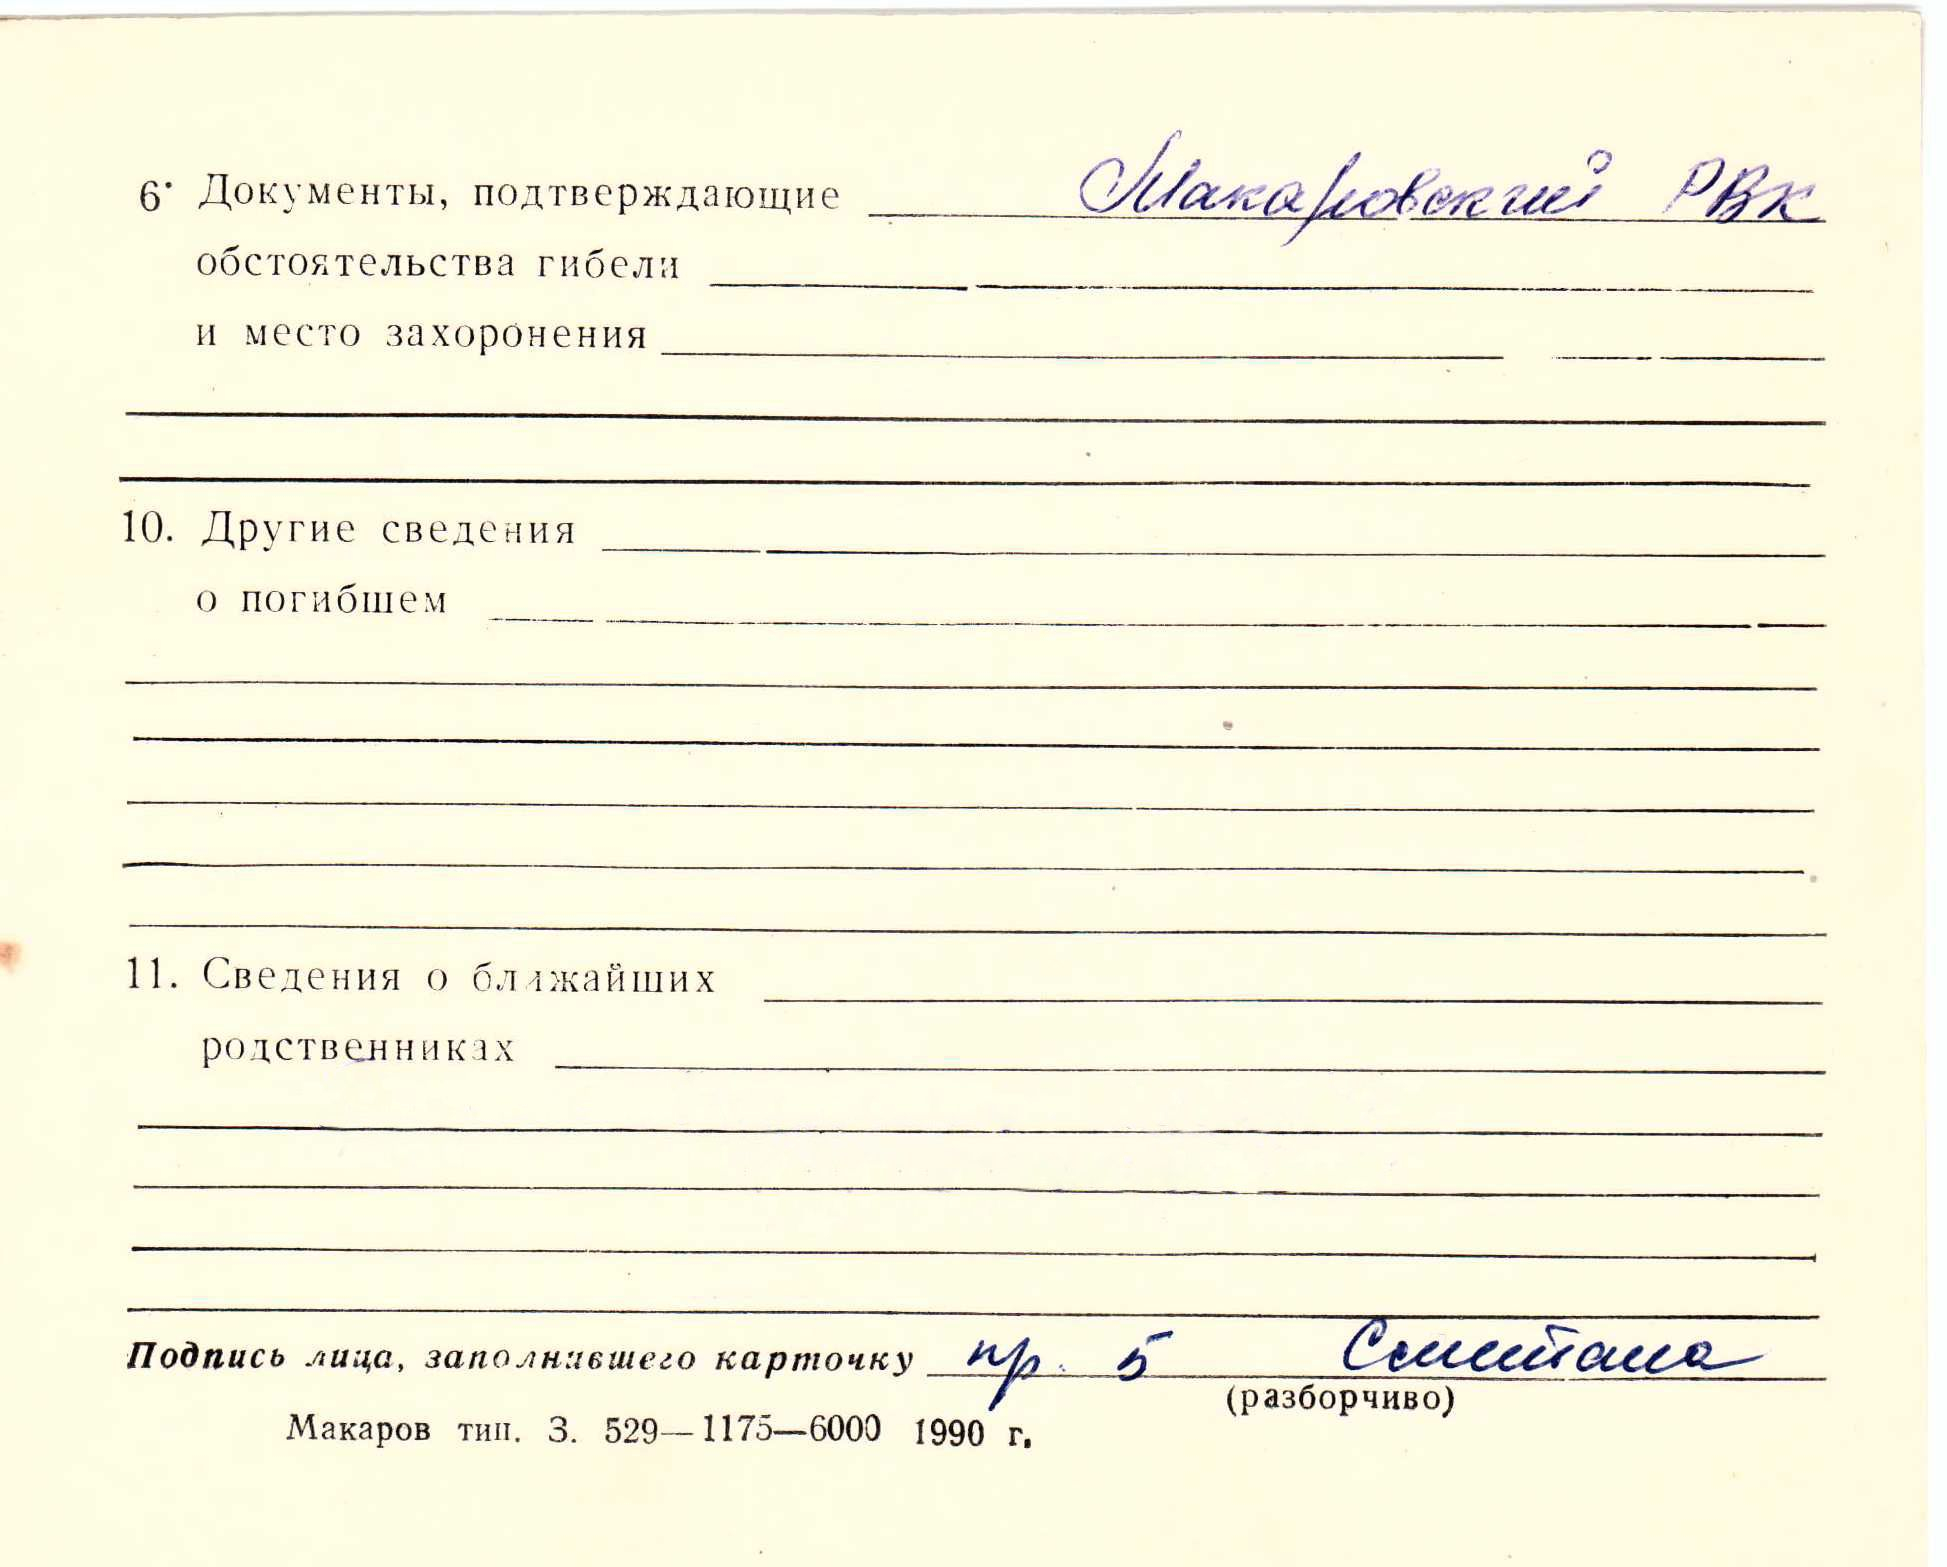 6. Документы, подтверждающие Макаровский РВК
обстоятельства гибели
и место захоронения
10. Другие сведения
о погибшем
11. Сведения о ближайших
родственниках
Подпись лица, заполнившего карточку пр. 5 Сметана
(разборчиво)
Макаров тип. З. 529—1175—6000 1990 г.